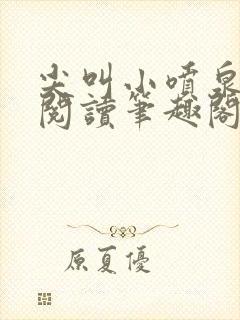 尖叫小噴泉
閱讀筆趣閣
原夏優